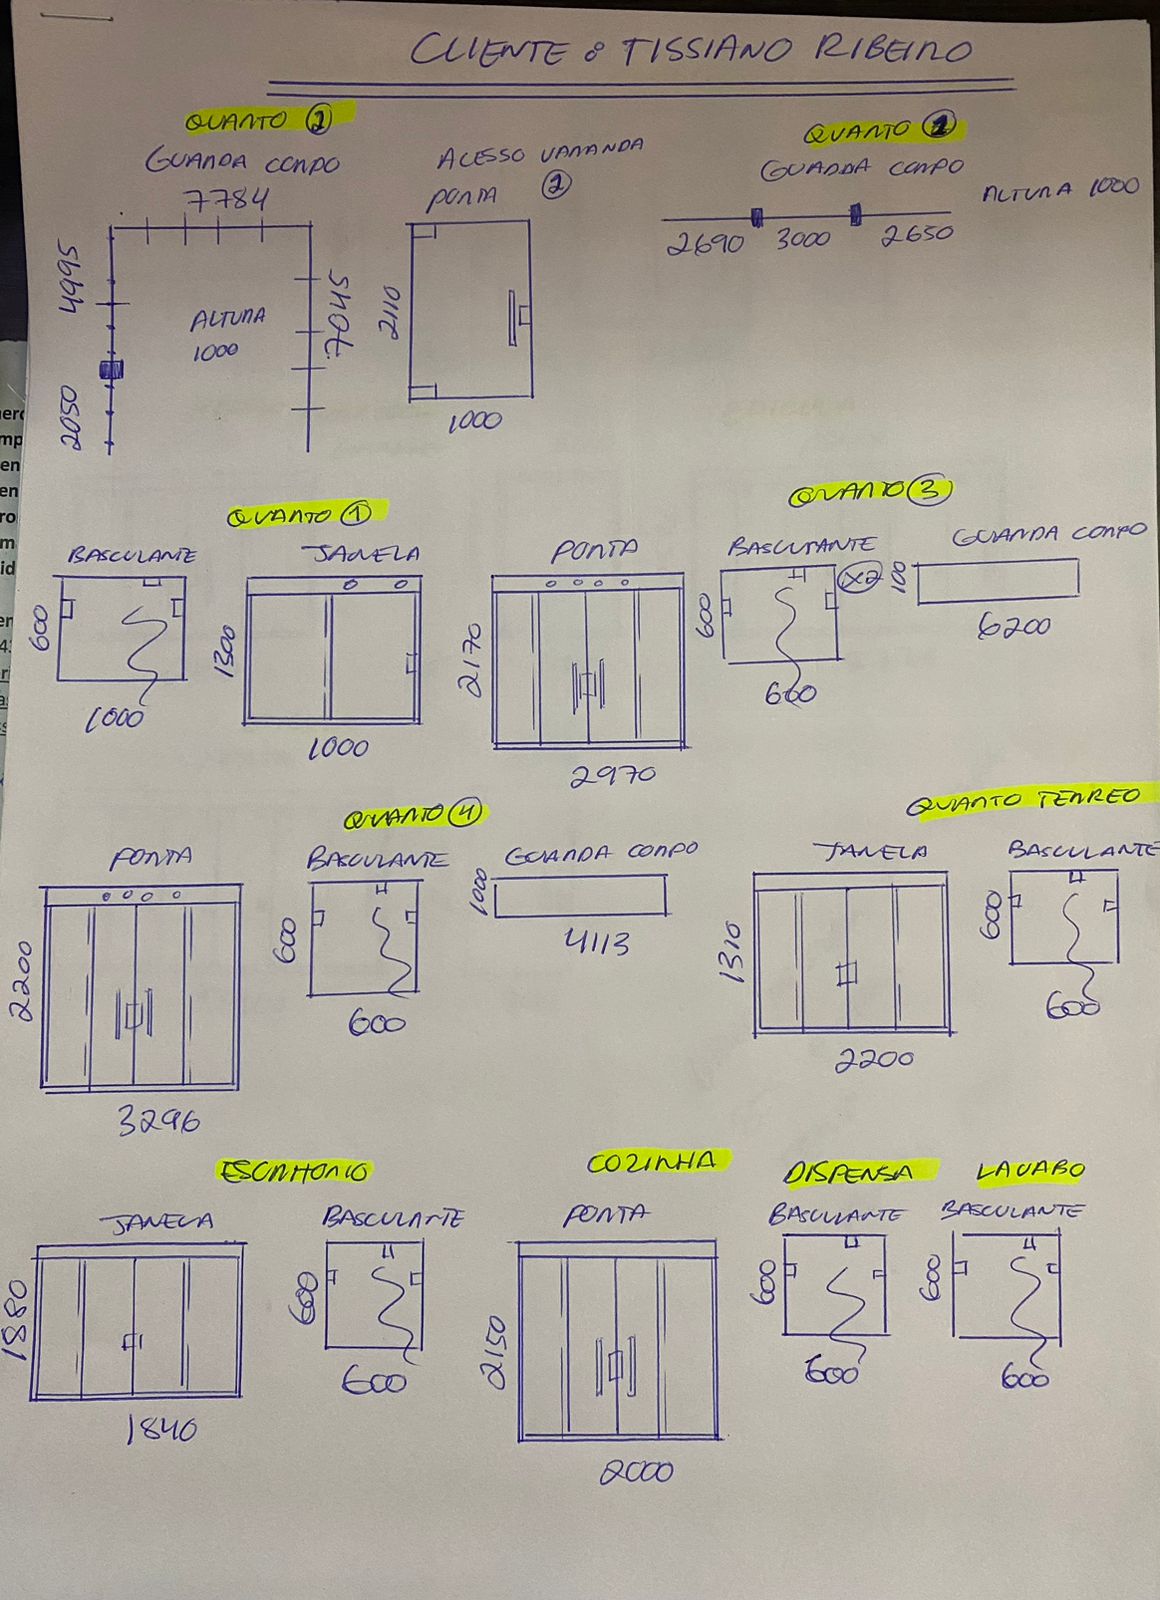 CLIENTE: TISSIANO RIBEIRO
QUARTO 2
GUARDA CORPO
7784
4995
2050
ALTURA
1000
7045
ACESSO VARANDA
PORTA 2
2110
1000
QUARTO 1
GUARDA CORPO
ALTURA 1000
2690 3000 2650
QUARTO 1
BASCULANTE
600
1000
JANELA
1300
1000
PORTA
2170
2970
QUARTO 3
BASCULANTE
X2
600
600
GUARDA CORPO
100
6200
QUARTO 4
PORTA
2200
3296
BASCULANTE
600
600
GUARDA CORPO
1000
4113
QUARTO TERREO
JANELA
1310
2200
BASCULANTE
600
600
ESCRITORIO
JANELA
1880
1840
BASCULANTE
600
600
COZINHA
PORTA
2150
2000
DISPENSA
BASCULANTE
600
600
LAVABO
BASCULANTE
600
600